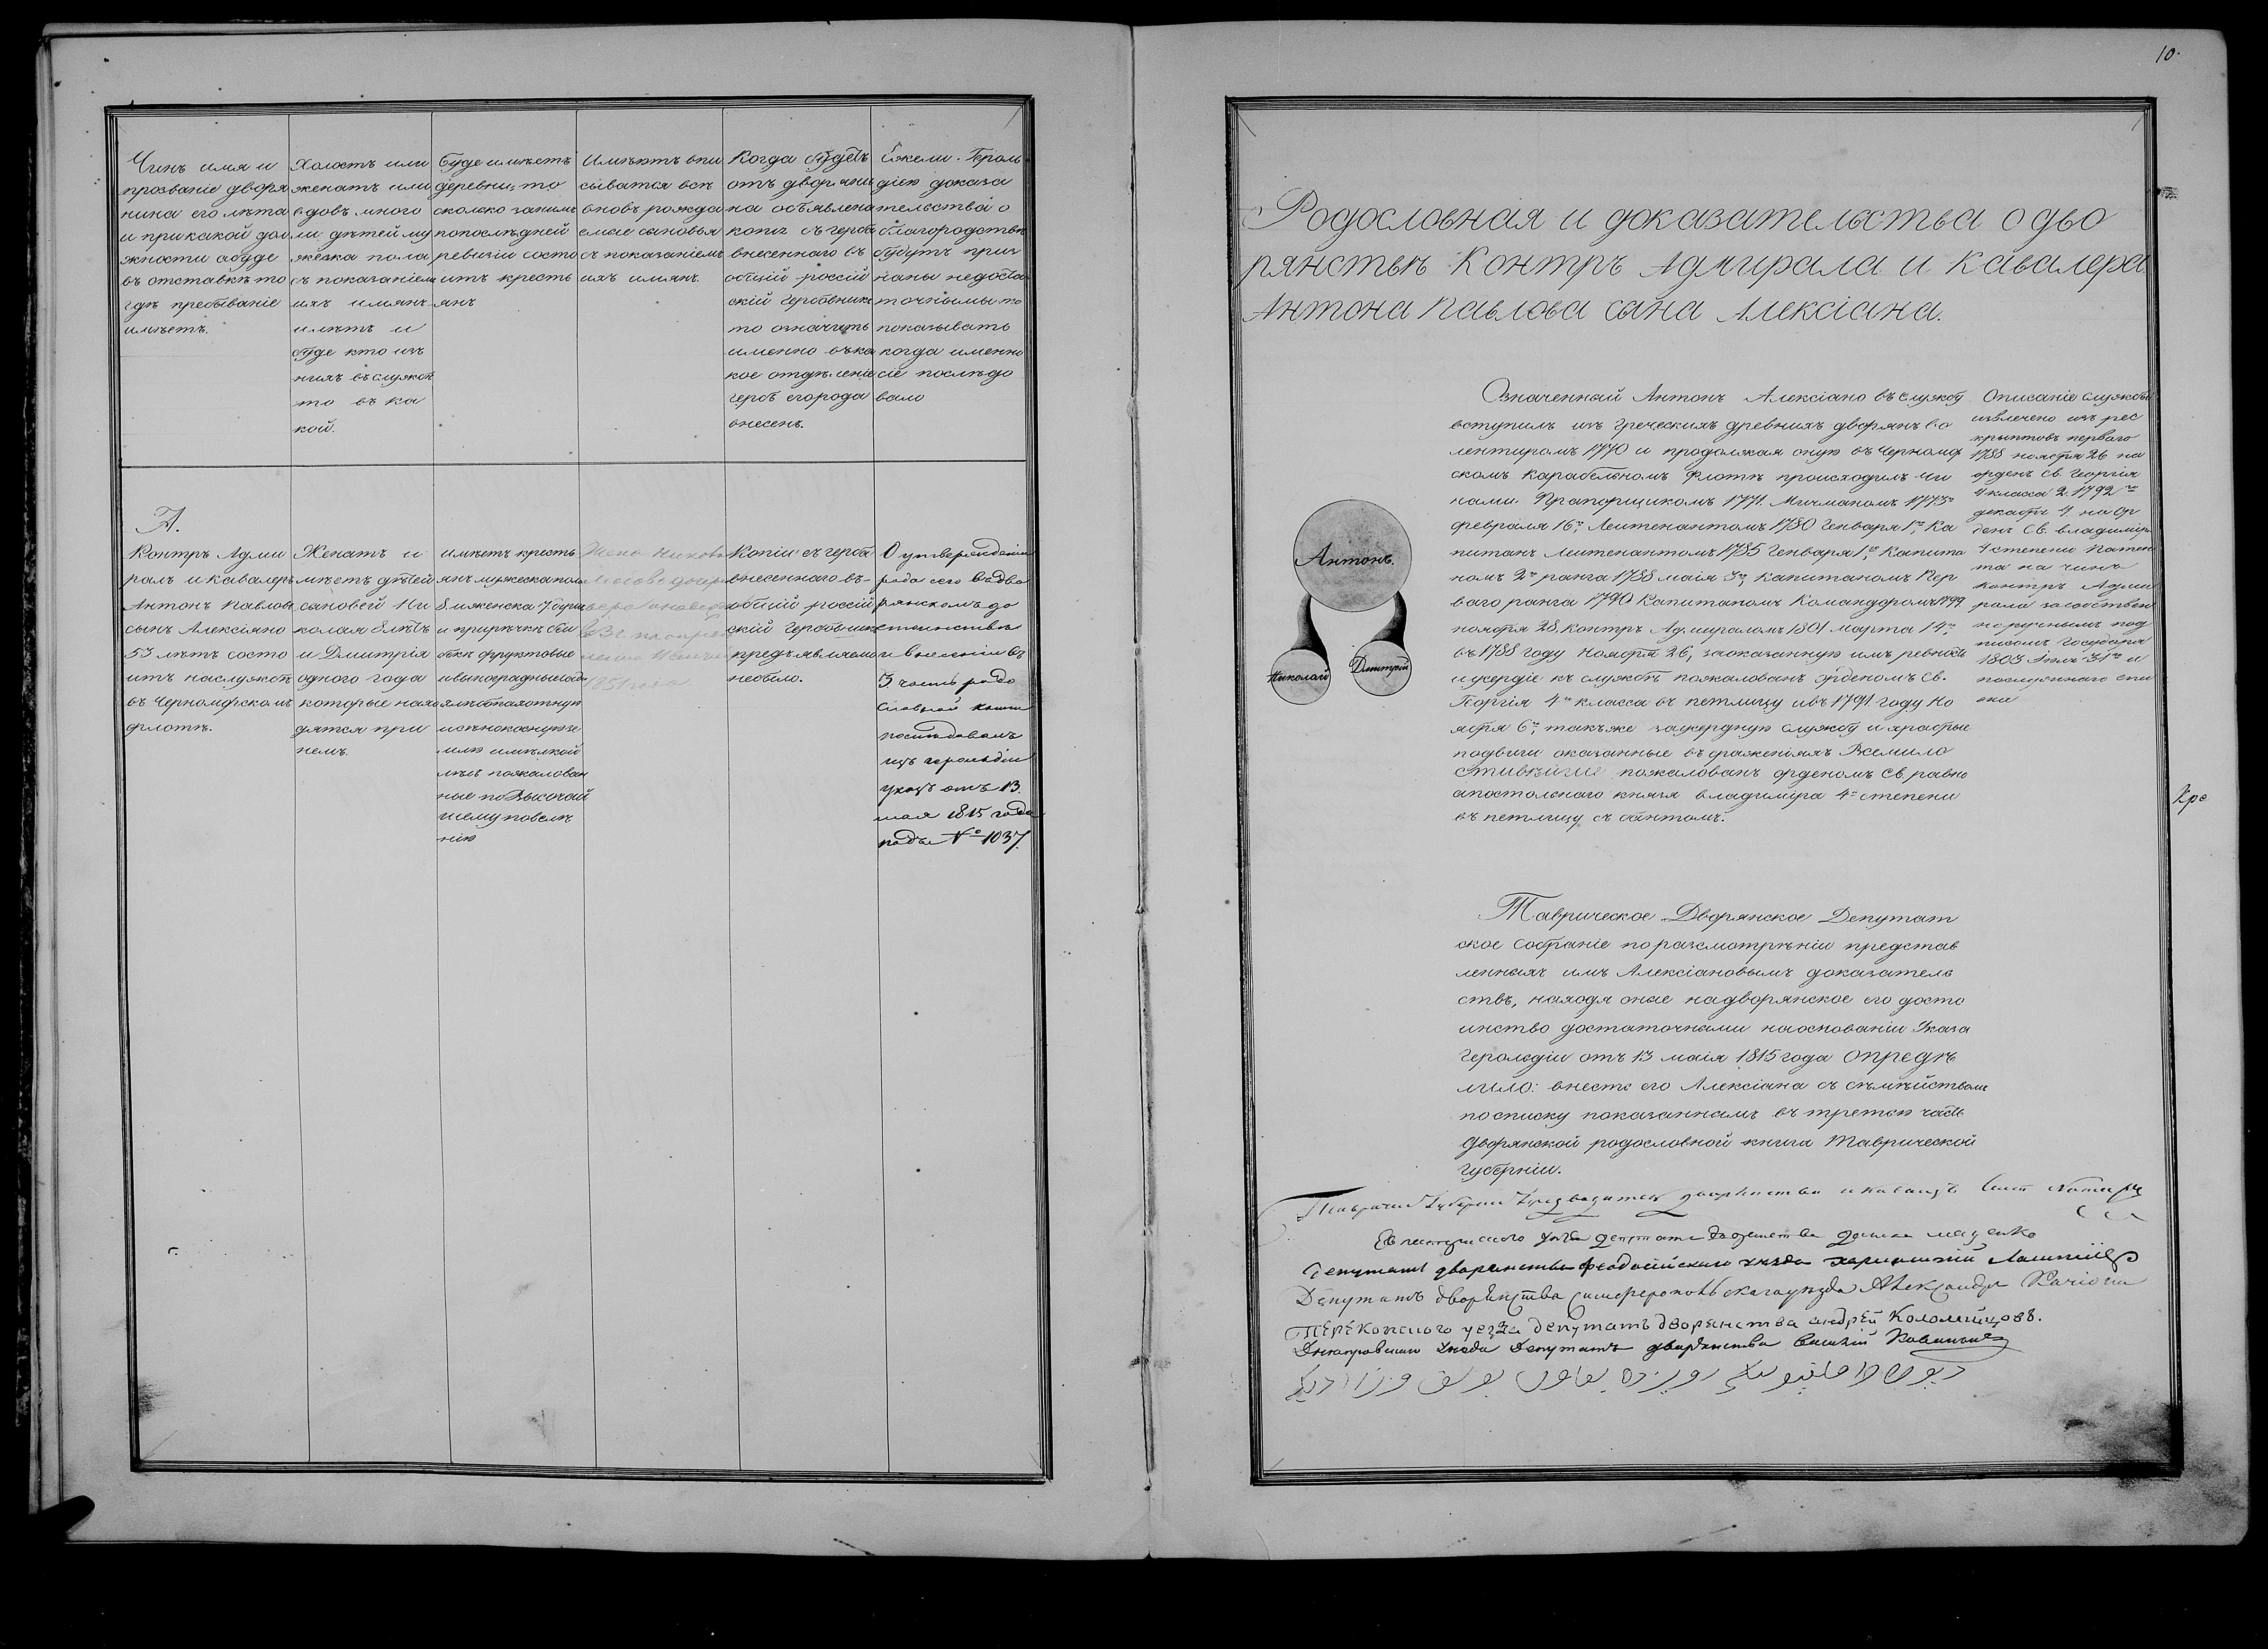 Чинъ имя и
прозваніе дворя
нина его лѣта
и при какой дол
жности а буде
въ отставкѣ то
гдѣ пребываніе
имѣетъ.
Холостъ или
женатъ или
вдовъ много
ли дѣтей му
жеска пола
съ показаніем
ихъ имянъ
имѣтъ и
буде кто изъ
нихъ въ службѣ
то въ ка
кой.
Буде имѣетъ
деревни, то
сколько за нимъ
по послѣдней
ревизіи состо
итъ кресть
янъ
Имѣютъ впи
сыватся всѣ
вновь рожда
емые сыновья
съ показаніемъ
ихъ имянъ.
Когда будетъ
отъ дворянин
на объявлена
копія съ герба
внесеннаго въ
общій россій
скій Гербовник
то означить
именно въ ка
кое отдѣленіе
гербъ его рода
внесенъ.
Ежели Героль
діею доказа
телства о
благородствѣ
будутъ приз
наны недоста
точными то
показывать
когда именно
сіе послѣдо
вало
А.
Контръ Адми
ралъ и кавалеръ
Антонъ Павловъ
сынъ Алексіано
53 лѣтъ состо
итъ на службѣ
въ Черноморскомъ
флотѣ.
Женатъ и
имѣетъ дѣтей
сыновей Ни
колая 8 лѣтъ
и Дмитрія
одного года
которые нахо
дятся при
немъ.
имѣетъ кресть
янъ мужеска пола
8 и женска 7 душъ
и при рѣчкѣ Бель
бекѣ фруктовые
и виноградные сады
пахотную
и сѣнокосную зе
млю
пожалован
ные по Высочай
шему повелѣ
нію
Жена
Любовь дочери
1851 года
Копіи съ герба
внесеннаго въ
общій россій
скій Гербовник
предъявляемо
небыло.
О утвержденіи
рода сего въ дво
рянскомъ до
стоинствѣ
и внесеніи въ
3. часть родо
словной книги
послѣдовалъ
изъ герольдіи
указъ отъ 13.
мая 1815 года
подъ № 1037.
10.
Родословная и доказательства о дво
рянствѣ Контръ Адмирала и Кавалера
Антона Павлова сына Алексіана.
Антонъ.
Николай
Дмитрій
Означенный Антонъ Алексіано въ службу
вступилъ изъ греческихъ древнихъ дворянъ во
лентиромъ 1770 и продолжая оную въ Черномор
скомъ Карабельномъ флотѣ происходилъ чи
нами. Прапорщикомъ 1771. Мичманомъ 1773го
февраля 16го, Леитенантомъ 1780 Генваря 1го, Ка
питанъ Леитенантомъ 1785 Генваря 1го, Капита
номъ 2го ранга 1788 маія 3го, Капитаномъ Пер
ваго ранга 1790 Капитаномъ Командоромъ 1799
ноября 28, Контръ Адмираломъ 1801 марта 14го,
въ 1788 году Ноября 26, за оказанную имъ ревность
и усердіе къ службѣ пожалованъ Орденомъ Св.
Георгія 4го класса въ петлицу и въ 1791 году Но
ября 6го, такъ же за усердную службу и храбрые
подвиги оказанные въ сраженіяхъ Всемило
стивѣйше пожалованъ орденомъ Св. равно
апостольнаго князя владиміра 4й степени
въ петлицу съ бантомъ.
Описаніе службы
извлечено изъ рес
крыптовъ перваго
1788 ноября 26 на
орденъ Св. Георгія
4 класса 2. 1792го
декабря 4 на ор
денъ Св. владиміра
4 степени патен
та на чинъ
контръ Адми
рала за собствен
норучнымъ под
писомъ Государя
1803 31го и
послужнаго спи
ска
Хре
Таврическое Дворянское Депутат
ское собраніе по разсмотрѣніи представ
ленныхъ имъ Алексіановымъ доказатель
ствъ, находя оные на дворянское его досто
инство достаточными на основаніи Указа
Герольдіи отъ 13 маія 1815 года опредѣ
лило: внесть его Алексіана съ семѣйствомъ
по списку показаннымъ въ третью часть
дворянской родословной книги Таврической
губерніи.
Губерніи Предводитель дворянства и кавалеръ
Евпаторійскаго уезда депутатъ дворянства
Депутатъ дворянства Феодосійскаго уезда
Депутатъ дворянства симферопольскаго уезда Александръ
Перекопского уезда депутатъ дворянства андрей Коломийцовъ.
Днепровскаго уезда Депутатъ дворянства